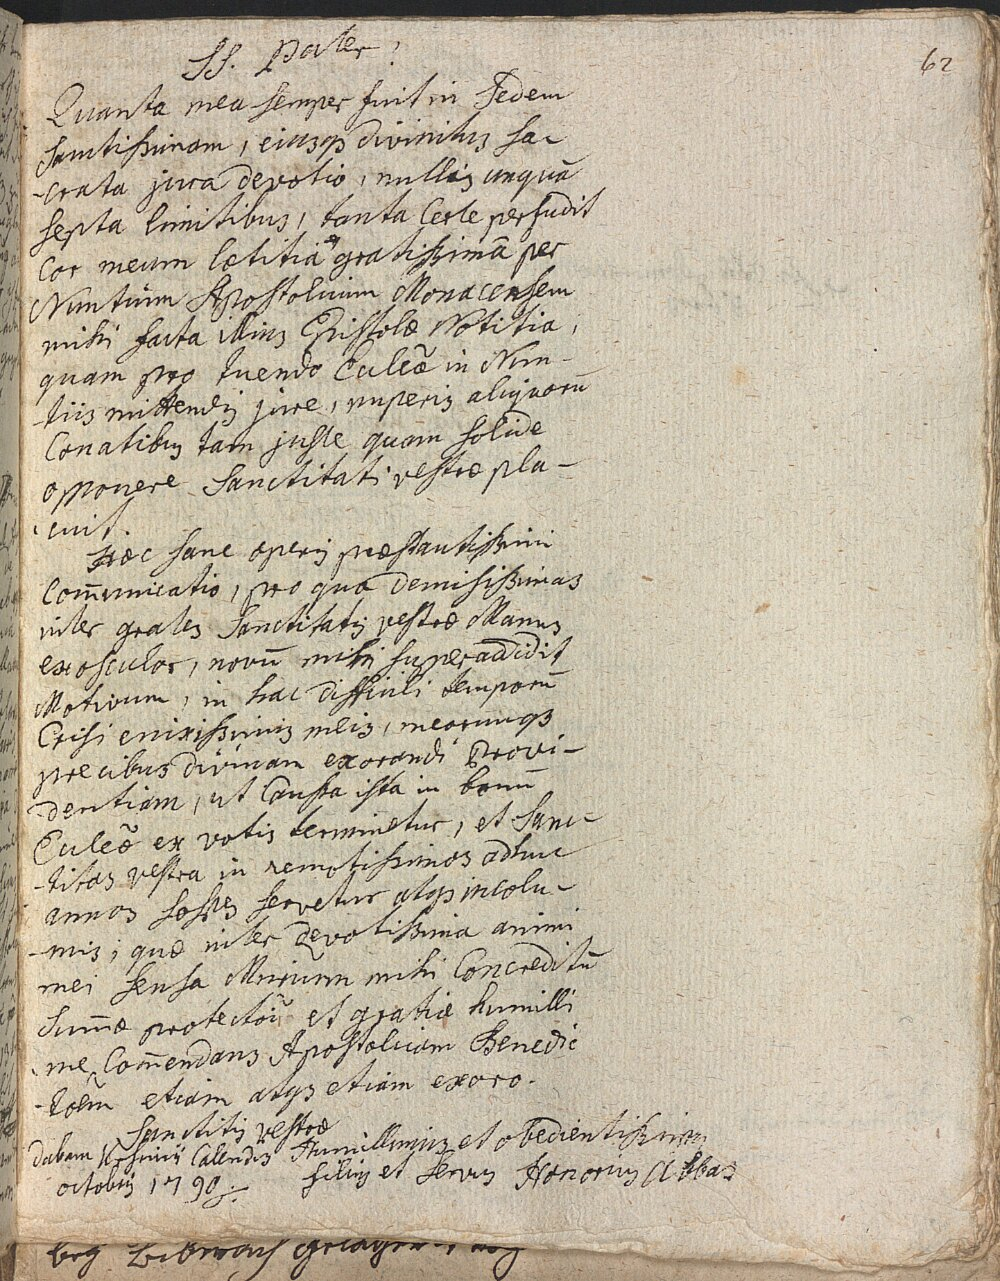 62
SS. Pater!
Quanta mea semper fuit in Sedem
Sanctissimam, eiusq divinitus sa-
-crata jura devotio, nullis unquā
septa limitibus, tanta certe perfudit
Cor meum lætitiâ gratissimâ per
Nuntium Apostolicum Monacensem
mihi facta illius Epistolæ Notitia,
quam pro tuendo Eccleæ in Nun-
-tiis mittendis jure, nuperis aliquorū
Conatibus tam juste quam solide
opponere Sanctitati vestræ pla-
-cuit.
Hæc sane operis præstantissimi
Com̄unicatio, pro qua demisissimas
inter grates Sanctitatis vestræ Manus
exosculor, novū mihi superaddidit
Motivum, in hac difficili temporū
Crisi enixissimis meis, meorumqs
precibus divinam exorandi Provi-
dentiam, ut Caussa ista in bonū
Eccleæ ex votis terminetur, et Sanc-
-titas vestra in remotissimos adhuc
annos sospes servetur atqs incolu-
-mis; quæ inter devotissima animi
mei sensa Mrium mihi Concreditū
Sum̄æ protectōi et gratiæ humilli
-me Com̄endans Apostolicam Benedic
-toem etiam atqs etiam exoro.
Sanctitis vestræ
Dabam Ursinii Calendis Humillimus et obedientissimus
octobris 1790. filius et servus Honoratus Abbas